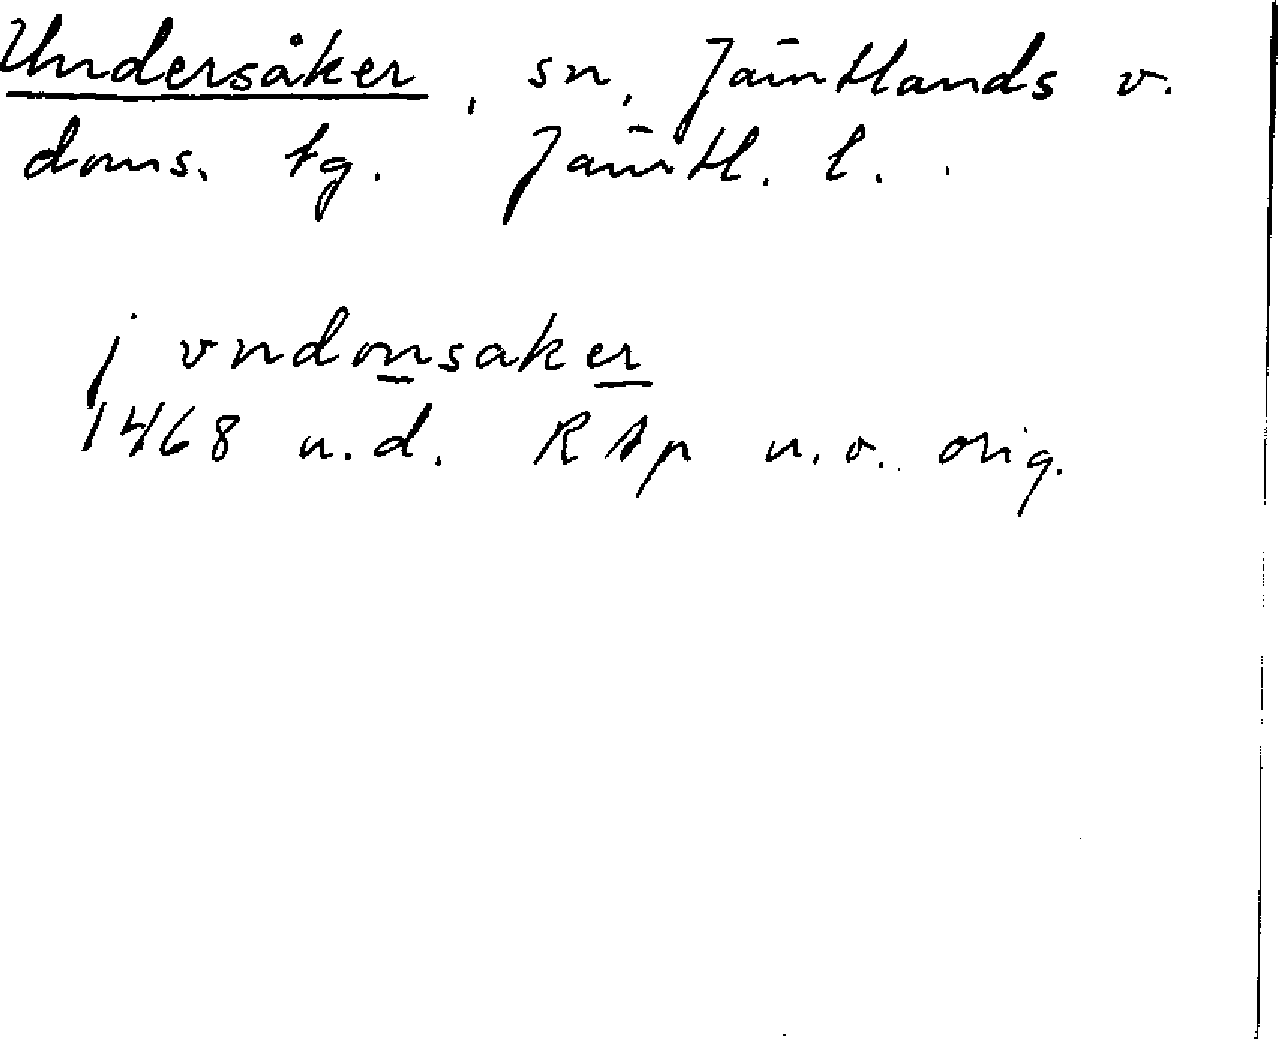 Undersåker, sn, Jämtlands v.
doms. tg. Jämtl. l.
j vndonsaker
1468 u.d. RAp n.v. orig.